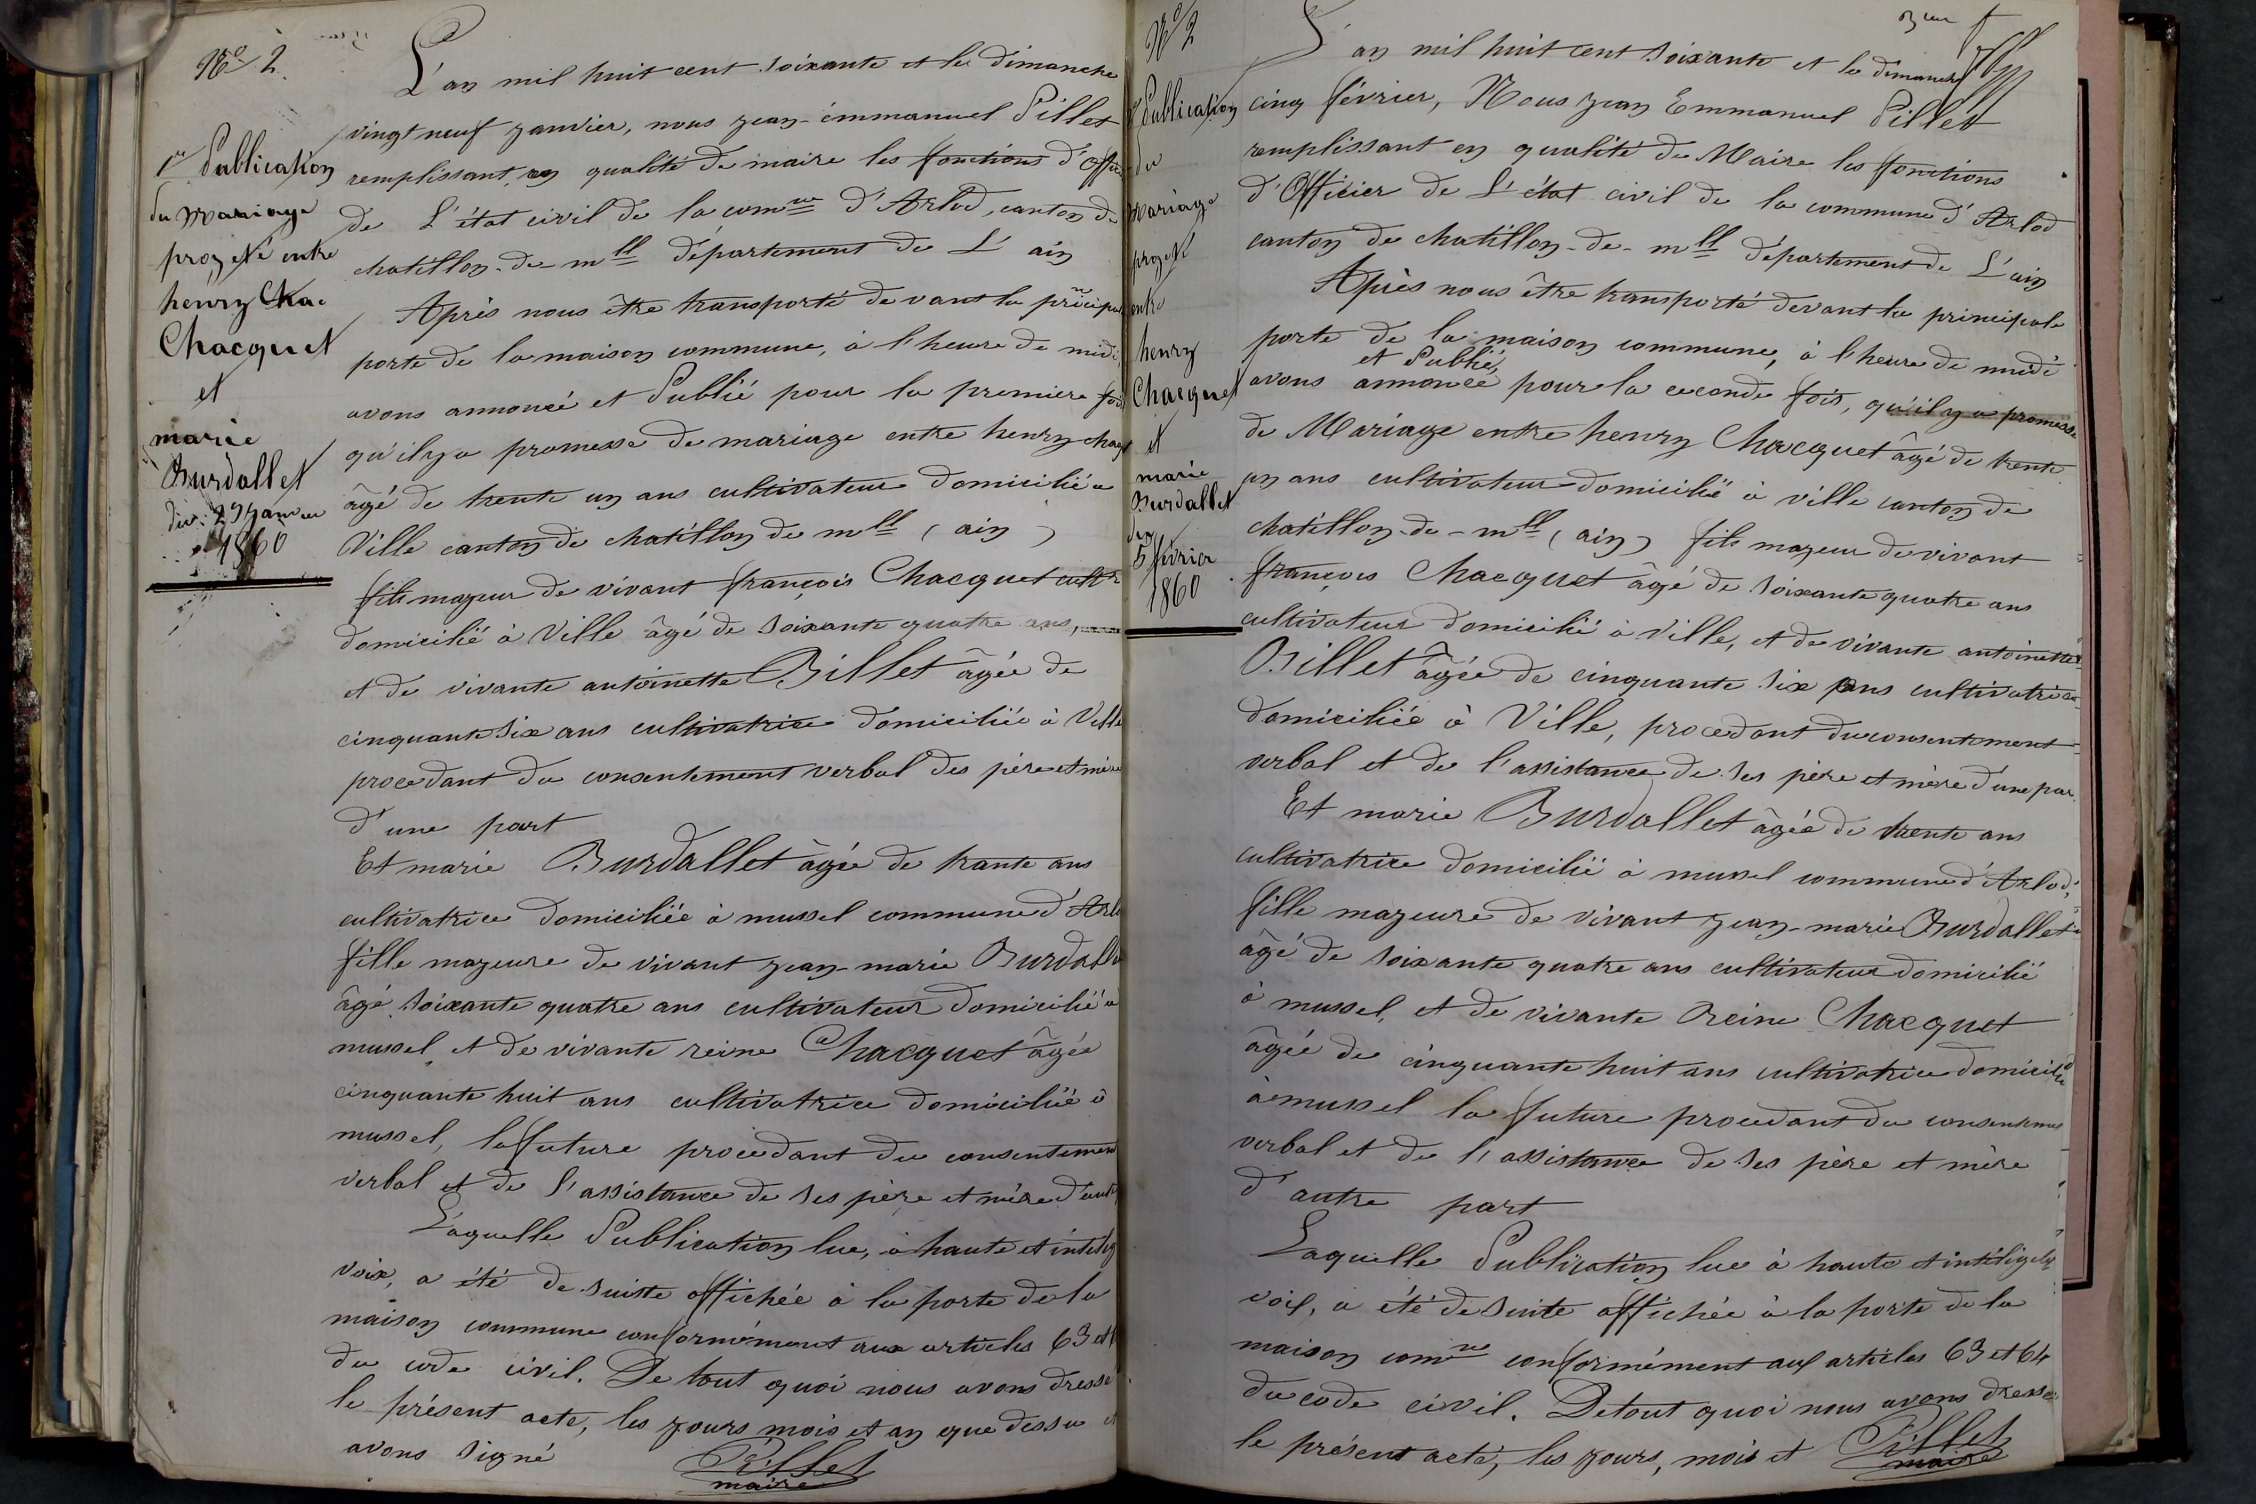 No 2.
1re Publication
du mariage
projeté entre
henry Chac
Chacquet
et
marie
Burdallet
du 29 janvier
1860
L'an mil huit cent soixante et le dimanche
vingt neuf janvier, nous jean-émmanuel Pillet
remplissant en qualité de maire les fonctions d'Offic
de L'état civil de la comne d'Arlod, canton de
chatillon-de-mll département de L'ain
Après nous être transporté devant la principal
porte de la maison commune, à l'heure de midi,
avons annoncé et Publié pour la premiere fois
qu'il y a promesse de mariage entre henry chacq
âgé de trente un ans cultivateur domicilié a
Ville canton de chatillon de mll (ain)
fils majeur de vivant françois Chacquet cultr
domicilié à Ville âgé de soixante quatre ans,
et de vivante antoinette Billet âgée de
cinquante six ans cultivatrice domiciliée à Ville
procedant du consentement verbal des père et mère
d'une part
Et marie Burdallet âgée de trante ans
cultivatrice domiciliée à mussel commune d'Arlo
fille majeure de vivant jean-marie Burdalle
âgé soixante quatre ans cultivateur domicilié a
mussel, et de vivante reine Chacquet âgée
cinquante huit ans cultivatrice domiciliée à
mussel, la future procedant du consentement
verbal et de l'assistance de ses père et mère d'autre
Laquelle Publication lue, à haute et intelig
voix, a été de suitte affichée à la porte de la
maison commune conformément aux articles 63 et 6
du code civil. De tout quoi nous avons dressé
le présent acte, les jours mois et an que dessu et
avons signé
Pillet
maire
No 2
2e Publication
du
mariage
projeté
entre
henry
Chacquet
et
marie
Burdallet
du
5 février
1860
L'an mil huit cent soixante et le dimanche
cinq février, Nous jean Emmanuel Pillet
remplissant en qualité de Maire les fonctions
d'Officier de L'état civil de la commune d'Arlod
canton de chatillon-de-mll département de L'ain
Après nous être transporté devant la principale
porte de la maison commune, à l'heure de midi
et Publié,
avons annoncé pour la ceconde fois, qu'il y a promesse
de Mariage entre henry Chacquet âgé de trente
un ans cultivateur domicilié à ville canton de
chatillon-de-mll (ain) fils majeur de vivant
françois Chacquet âgé de soixante quatre ans
cultivateur domicilié à Ville, et de vivante antoinette
Billet âgée de cinquante six ans cultivatrice
domiciliée à Ville, procedant du consentement
verbal et de l'assistance de ses père et mère d'une par
Et marie Burdallet âgée de trente ans
cultivatrice domicilié à mussel commune d'Arlod,
fille majeure de vivant jean-marie Burdallet
âgé de soixante quatre ans cultivateur domicilié
à mussel, et de vivante Reine Chacquet
âgée de cinquante huit ans cultivatrice domicilié
à mussel la future procedant du consentement
verbal et de l'assistance de ses père et mère
d'autre part
Laquelle Publication lue à haute et intéligeble
voix, a été de suite affichée à la porte de la
maison comne conformément aux articles 63 et 64
du code civil. De tout quoi nous avons dressé
le présent acte, les jours, mois et
Pillet
maire